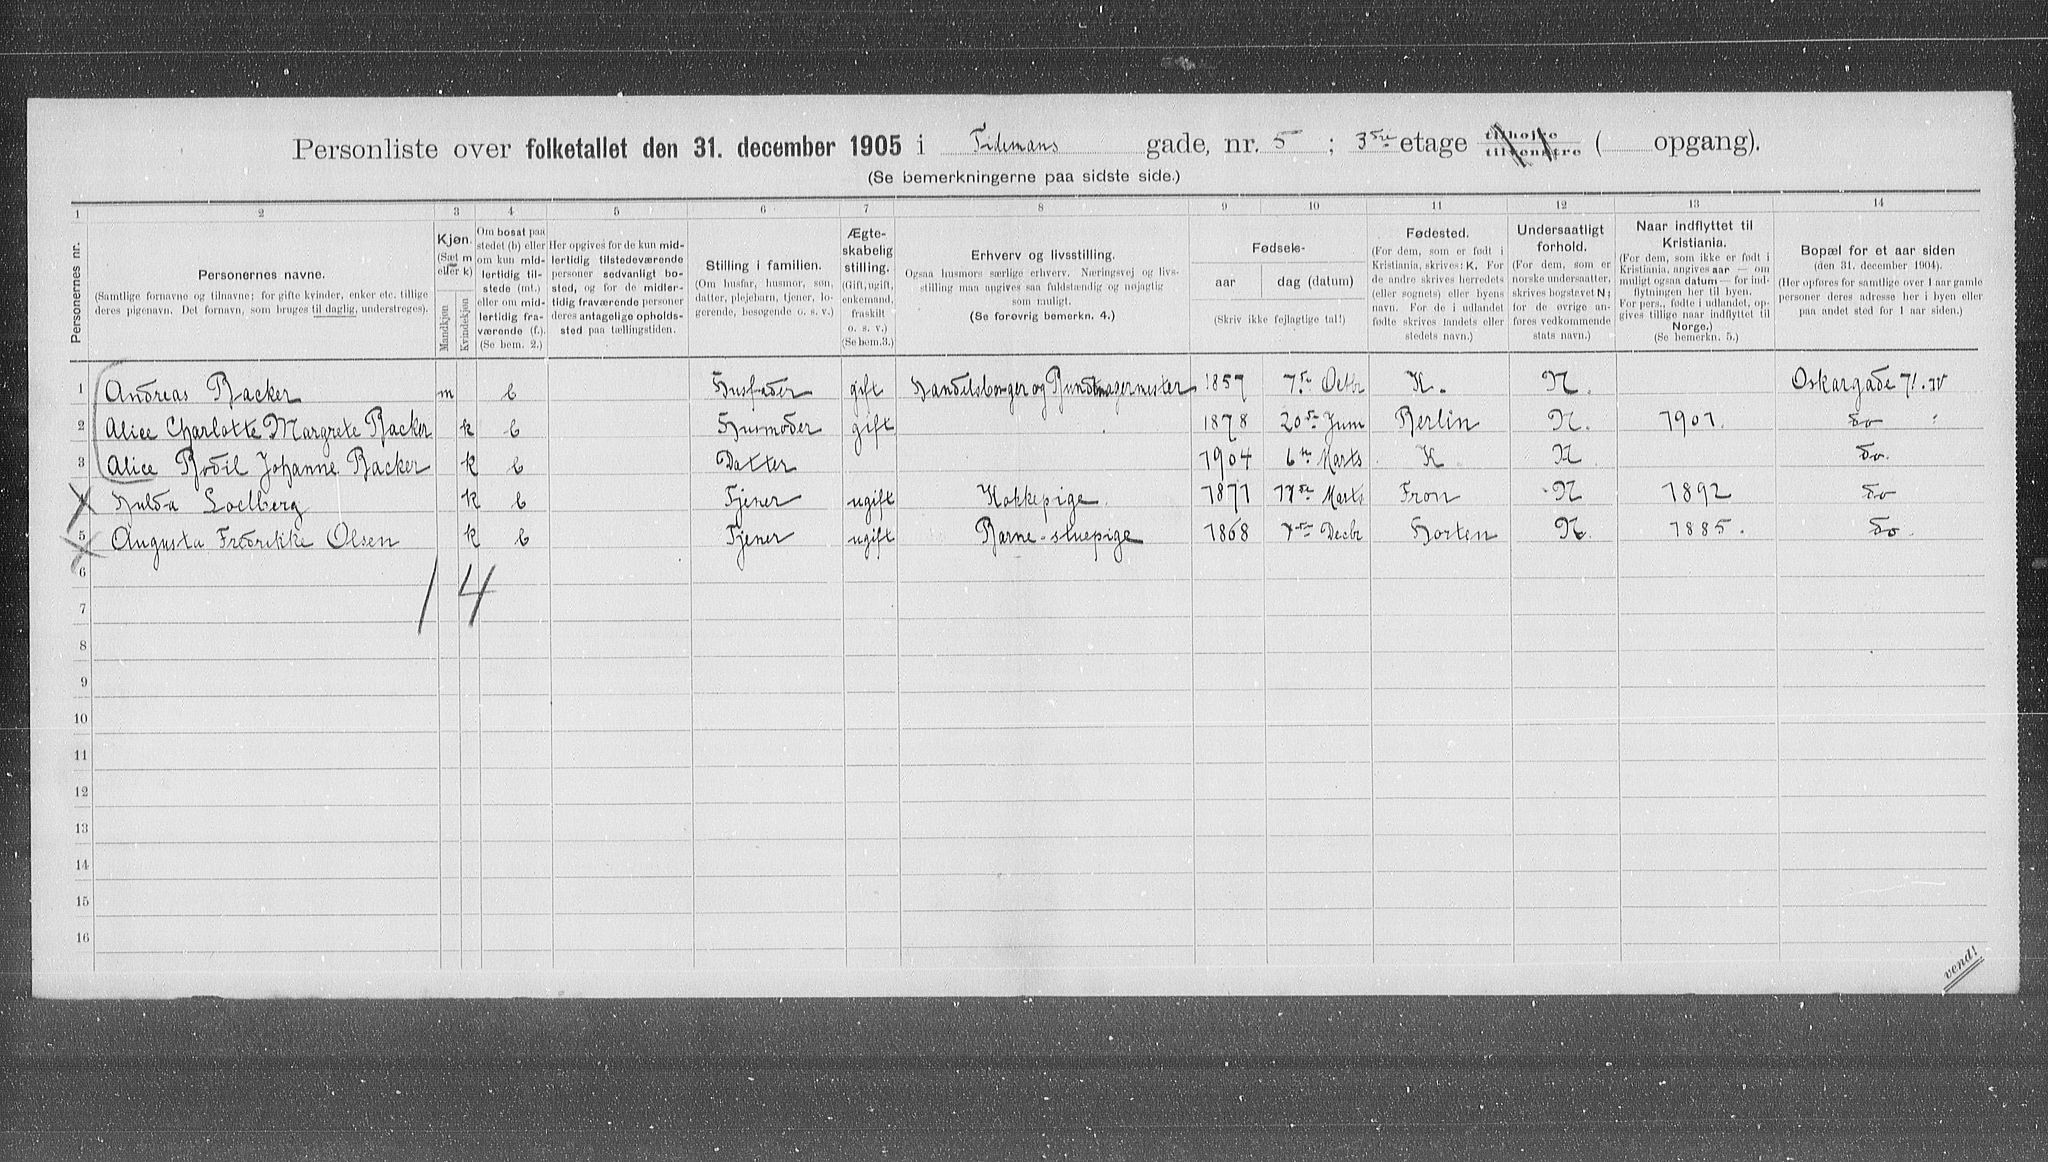 Personliste over folketallet den 31. december 1905 i Tidemans gade, nr. 5 ; 3die etage tilhøjre tilvenstre ( opgang).
(Se bemerkningerne paa sidste side.)
1 2 3 4 5 6 7 8 9 10 11 12 13 14
Personernes nr.
Personernes navne.
(Samtlige fornavne og tilnavne; for gifte kvinder, enker etc. tillige deres pigenavn. Det fornavn, som bruges til daglig, understreges).
Kjøn.
(Sæt m eller k)
Mandkjøn
Kvindekjøn
Om bosat paa stedet (b) eller om kun midlertidig tilstede (mt.) eller om midlertidig fraværende (f.).
(Se bem. 2.)
Her opgives for de kun midlertidig tilstedeværende personer sedvanligt bosted, og for de midlertidig fraværende personer deres antagelige opholdssted paa tællingstiden.
Stilling i familien.
(Om husfar, husmor, søn, datter, plejebarn, tjener, logerende, besøgende o. s. v.)
Ægteskabelig stilling.
(Gift, ugift, enkemand, fraskilt o. s. v.)
(Se bem. 3.)
Erhverv og livsstilling.
Ogsaa husmors særlige erhverv. Næringsvej og livsstilling maa angives saa fuldstændig og nøjagtig som muligt.
(Se forøvrig bemerkn. 4.)
Fødsels-
aar
dag (datum)
(Skriv ikke fejlagtige tal!)
Fødested.
(For dem, som er født i Kristiania, skrives: K. For de andre skrives herredets (eller sognets) eller byens navn. For de i udlandet fødte skrives landets eller stedets navn.)
Undersaatligt forhold.
(For dem, som er norske undersaatter, skrives bogstevet N; for de øvrige anføres vedkommende stats navn.)
Naar indflyttet til Kristiania.
(For dem, som ikke er født i Kristiania, angives aar — om muligt ogsaa datum — for indflytningen her til byen. For pers., fødte i udlandet, opgives tillige naar indflyttet til Norge.)
(Se bemerkn. 5.)
Bopæl for et aar siden
(den 31. december 1904).
(Her opføres for samtlige over 1 aar gamle personer deres adresse her i byen eller paa andet sted for 1 aar siden.)
1 Andreas Backer m b Husfader gift Handelsborger og Bundtmagermester 1857 7de Octbr K. N. Oskargade 71. IV
2 Alice Charlotte Margrete Backer k b Husmoder gift 1878 20de Juni Berlin N. 1901. Do
3 Alice Bodil Johanne Backer k b Datter 1904 6te Marts K N Do.
Hulda Solberg k b Tjener ugift Kokkepige. 1871 Marts Fron N 1892 Do
5 Augusta Fredrikke Olsen k b Tjener ugift Barne-stuepige 1868 Decbr Horten N. 1885. Do.
6
1 4
7
8
9
10
11
12
13
14
15
16
vend!